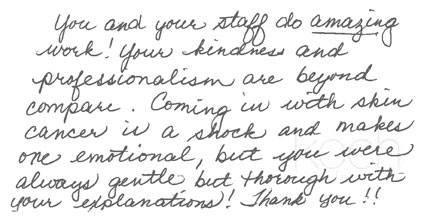 You and your staff do amazing
work! Your kindness and
professionalism are beyond
compare. Coming in with skin
cancer is a shock and makes
one emotional, but you were
always gentle but thorough with
your explanations! Thank you!!